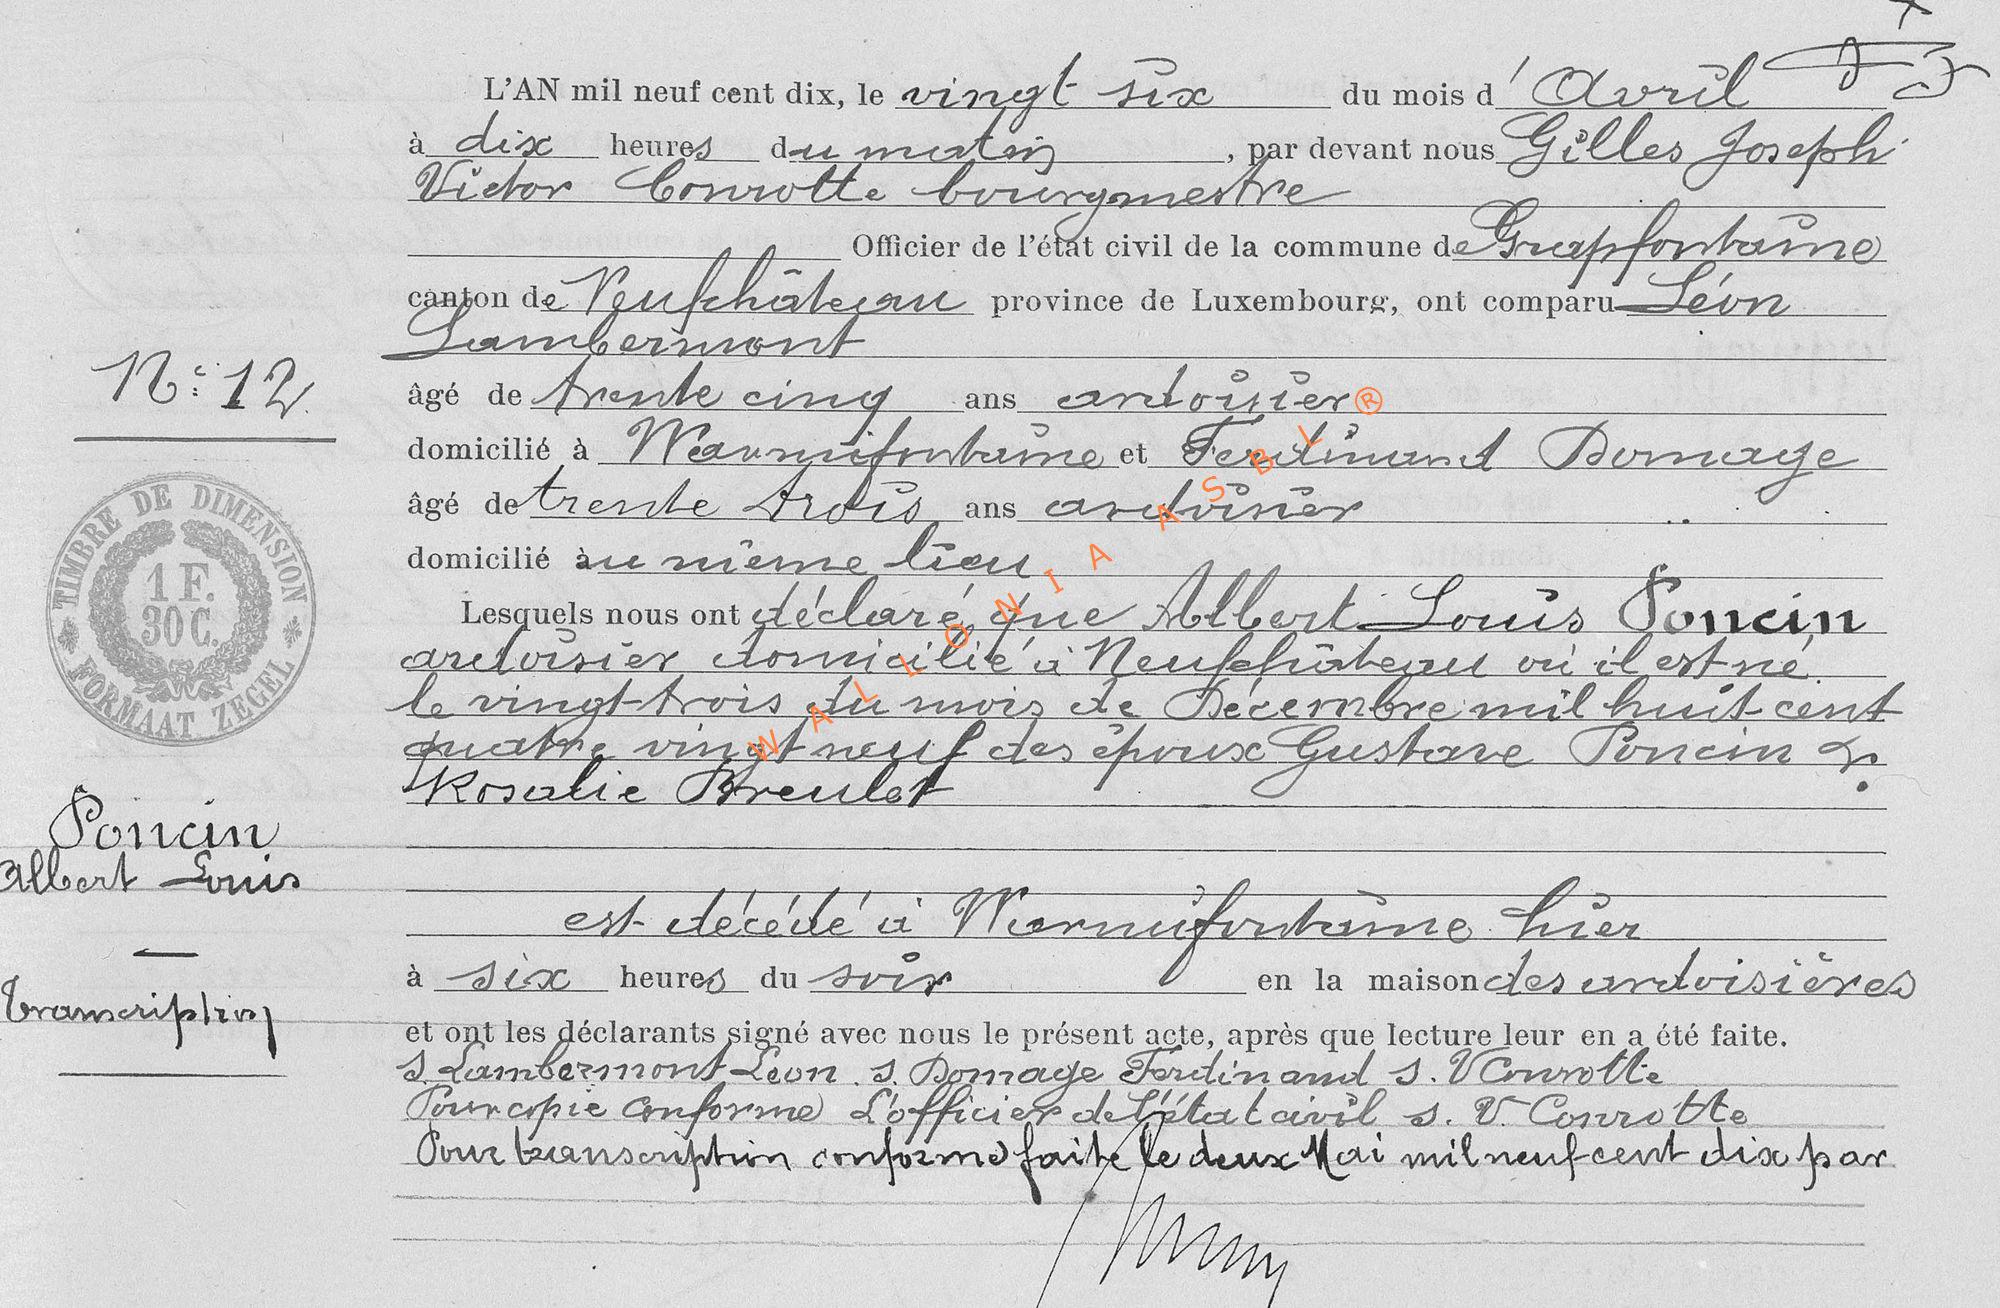 L'AN mil neuf cent dix, le vingt six du mois d'Avril
à dix heures du matin, par devant nous Gilles Joseph
Victor Conrotte bourgmestre
Officier de l'état civil de la commune de Grapfontaine
canton de Neufchâteau province de Luxembourg, ont comparu Léon
Lambermont
N° 12
âgé de trente cinq ans ardoisier
domicilié à Warmifontaine et Ferdinand Domage
âgé de trente trois ans ardoisier
domicilié au même lieu
TIMBRE DE DIMENSION
1 F.
30 C.
FORMAAT ZEGEL
Lesquels nous ont déclaré que Albert Louis Poncin
ardoisier domicilié à Neufchâteau où il est né
le vingt-trois du mois de Décembre mil huit cent
quatre vingt neuf des époux Gustave Poncin &
Rosalie Breulet
Poncin
Albert Louis
est décédé à Warmifontaine hier
à six heures du soir en la maison des ardoisières
Transcription
et ont les déclarants signé avec nous le présent acte, après que lecture leur en a été faite.
s. Lambermont Léon. s. Domage Ferdinand s. V Conrotte
Pour copie conforme L'officier de l'état civil s. V. Conrotte
Pour transcription conforme faite le deux Mai mil neuf cent dix par
WALLONIA ASBL ®